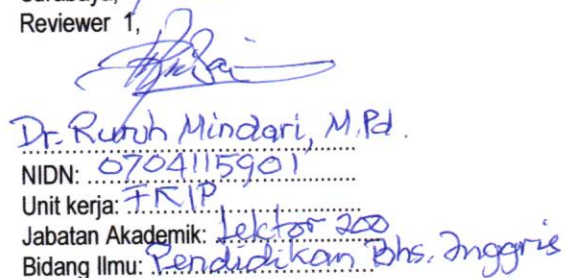 Surabaya,
Reviewer 1,
Dr. Ruruh Mindari, M.Pd.
NIDN: 0704115901
Unit kerja: FKIP
Jabatan Akademik: Lektor 200
Bidang Ilmu: Pendidikan Bhs. Inggris